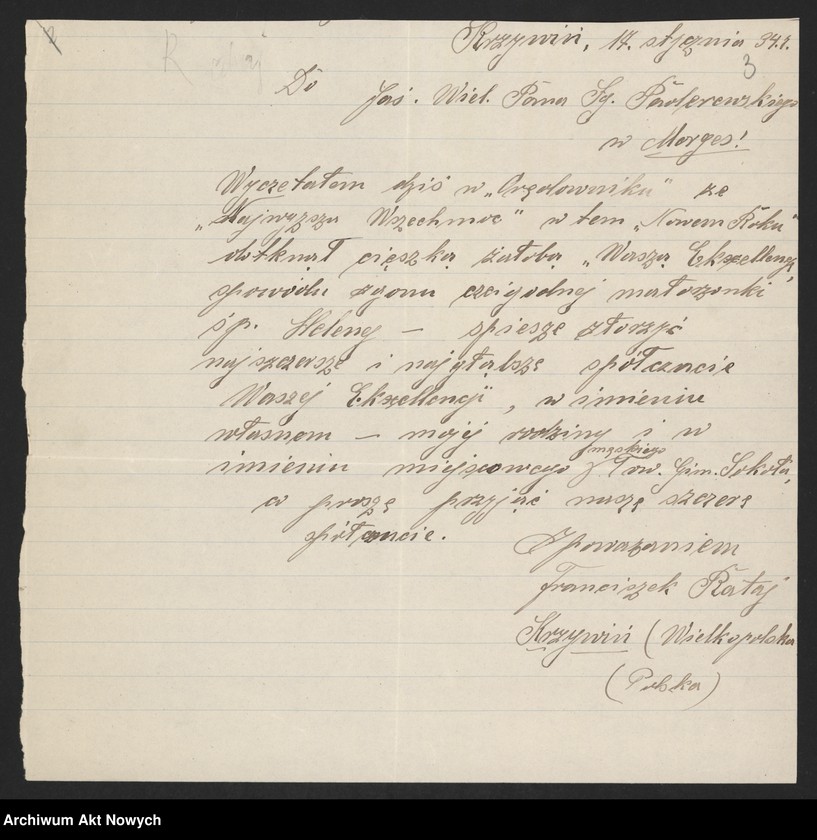 Krzywiń, 17. stycznia 34.r.
3
Do
Jaś. Wiel. Pana Ig. Paderewskiego
w Morges!
Wyczetałem dziś w „Orędowniku" że
„Najwyższa Wszechmoc" w tem „Nowem Roku"
dotknął cięszką żałobą „Waszą Ekxellencję,
spowodu zgonu czcigodnej małżonki
ś.p. Heleny — spieszę złożyć
najszczersze i najgłąbsze spółczucie
Waszej Ekxellencji", w imieniu
własnem — mojej rodziny i w
imieniu miejscowego męskiego Tow. Gim. Sokoła,
a proszę przyjąć nasze szczere
spółczucie.
Zpoważaniem
Franciszek Rataj
Krzywiń (Wielkopolska
(Polska)
Archiwum Akt Nowych